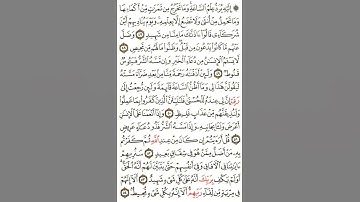 ۞ إِلَيْهِ يُرَدُّ عِلْمُ ٱلسَّاعَةِ وَمَا تَخْرُجُ مِن ثَمَرَٰتٍ مِّنْ أَكْمَامِهَا
وَمَا تَحْمِلُ مِنْ أُنثَىٰ وَلَا تَضَعُ إِلَّا بِعِلْمِهِۦ وَيَوْمَ يُنَادِيهِمْ أَيْنَ
شُرَكَآءِى قَالُوٓا۟ ءَاذَنَّٰكَ مَا مِنَّا مِن شَهِيدٍ ٤٧ وَضَلَّ
عَنْهُم مَّا كَانُوا۟ يَدْعُونَ مِن قَبْلُ وَظَنُّوا۟ مَا لَهُم مِّن مَّحِيصٍ ٤٨
لَّا يَسْـَٔمُ ٱلْإِنسَٰنُ مِن دُعَآءِ ٱلْخَيْرِ وَإِن مَّسَّهُ ٱلشَّرُّ فَيَـُٔوسٌ
قَنُوطٌ ٤٩ وَلَئِنْ أَذَقْنَٰهُ رَحْمَةً مِّنَّا مِنۢ بَعْدِ ضَرَّآءَ مَسَّتْهُ
لَيَقُولَنَّ هَٰذَا لِى وَمَآ أَظُنُّ ٱلسَّاعَةَ قَآئِمَةً وَلَئِن رُّجِعْتُ إِلَىٰ
رَبِّىٓ إِنَّ لِى عِندَهُۥ لَلْحُسْنَىٰ فَلَنُنَبِّئَنَّ ٱلَّذِينَ كَفَرُوا۟ بِمَا عَمِلُوا۟
وَلَنُذِيقَنَّهُم مِّنْ عَذَابٍ غَلِيظٍ ٥٠ وَإِذَآ أَنْعَمْنَا عَلَى ٱلْإِنسَٰنِ
أَعْرَضَ وَنَـَٔا بِجَانِبِهِۦ وَإِذَا مَسَّهُ ٱلشَّرُّ فَذُو دُعَآءٍ عَرِيضٍ
٥١ قُلْ أَرَءَيْتُمْ إِن كَانَ مِنْ عِندِ ٱللَّهِ ثُمَّ كَفَرْتُم
بِهِۦ مَنْ أَضَلُّ مِمَّنْ هُوَ فِى شِقَاقٍۭ بَعِيدٍ ٥٢ سَنُرِيهِمْ
ءَايَٰتِنَا فِى ٱلْـَٔافَاقِ وَفِىٓ أَنفُسِهِمْ حَتَّىٰ يَتَبَيَّنَ لَهُمْ أَنَّهُ ٱلْحَقُّ
أَوَلَمْ يَكْفِ بِرَبِّكَ أَنَّهُۥ عَلَىٰ كُلِّ شَىْءٍ شَهِيدٌ ٥٣ أَلَآ إِنَّهُمْ
فِى مِرْيَةٍ مِّن لِّقَآءِ رَبِّهِمْ أَلَآ إِنَّهُۥ بِكُلِّ شَىْءٍ مُّحِيطٌۢ ٥٤